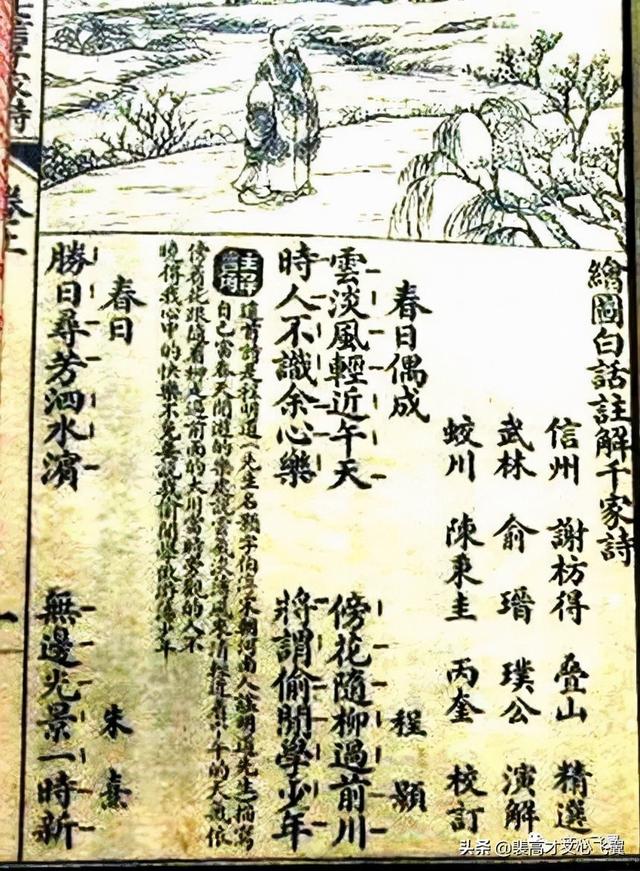 繪圖白話註解千家詩
信州 謝枋得 叠山 精選
武林 俞瑨 璞公 演解
蛟川 陳秉圭 丙奎 校訂
春日偶成 程顥
雲淡風輕近午天 傍花隨柳過前川
時人不識余心樂 將謂偷閒學少年
先生名顥字伯淳宋朝河南人諡明道先生描寫
自己當春天閒遊的樂處說雲 的天氣依
傍着花跟隨着柳走過前面的大川當時旁觀的人不
曉得我心中的快樂不免要說我偷閒學做 少年
春日 朱熹
勝日尋芳泗水濱 無邊光景一時新
千家詩
卷上
一
头条 @裴高才文心飞翼